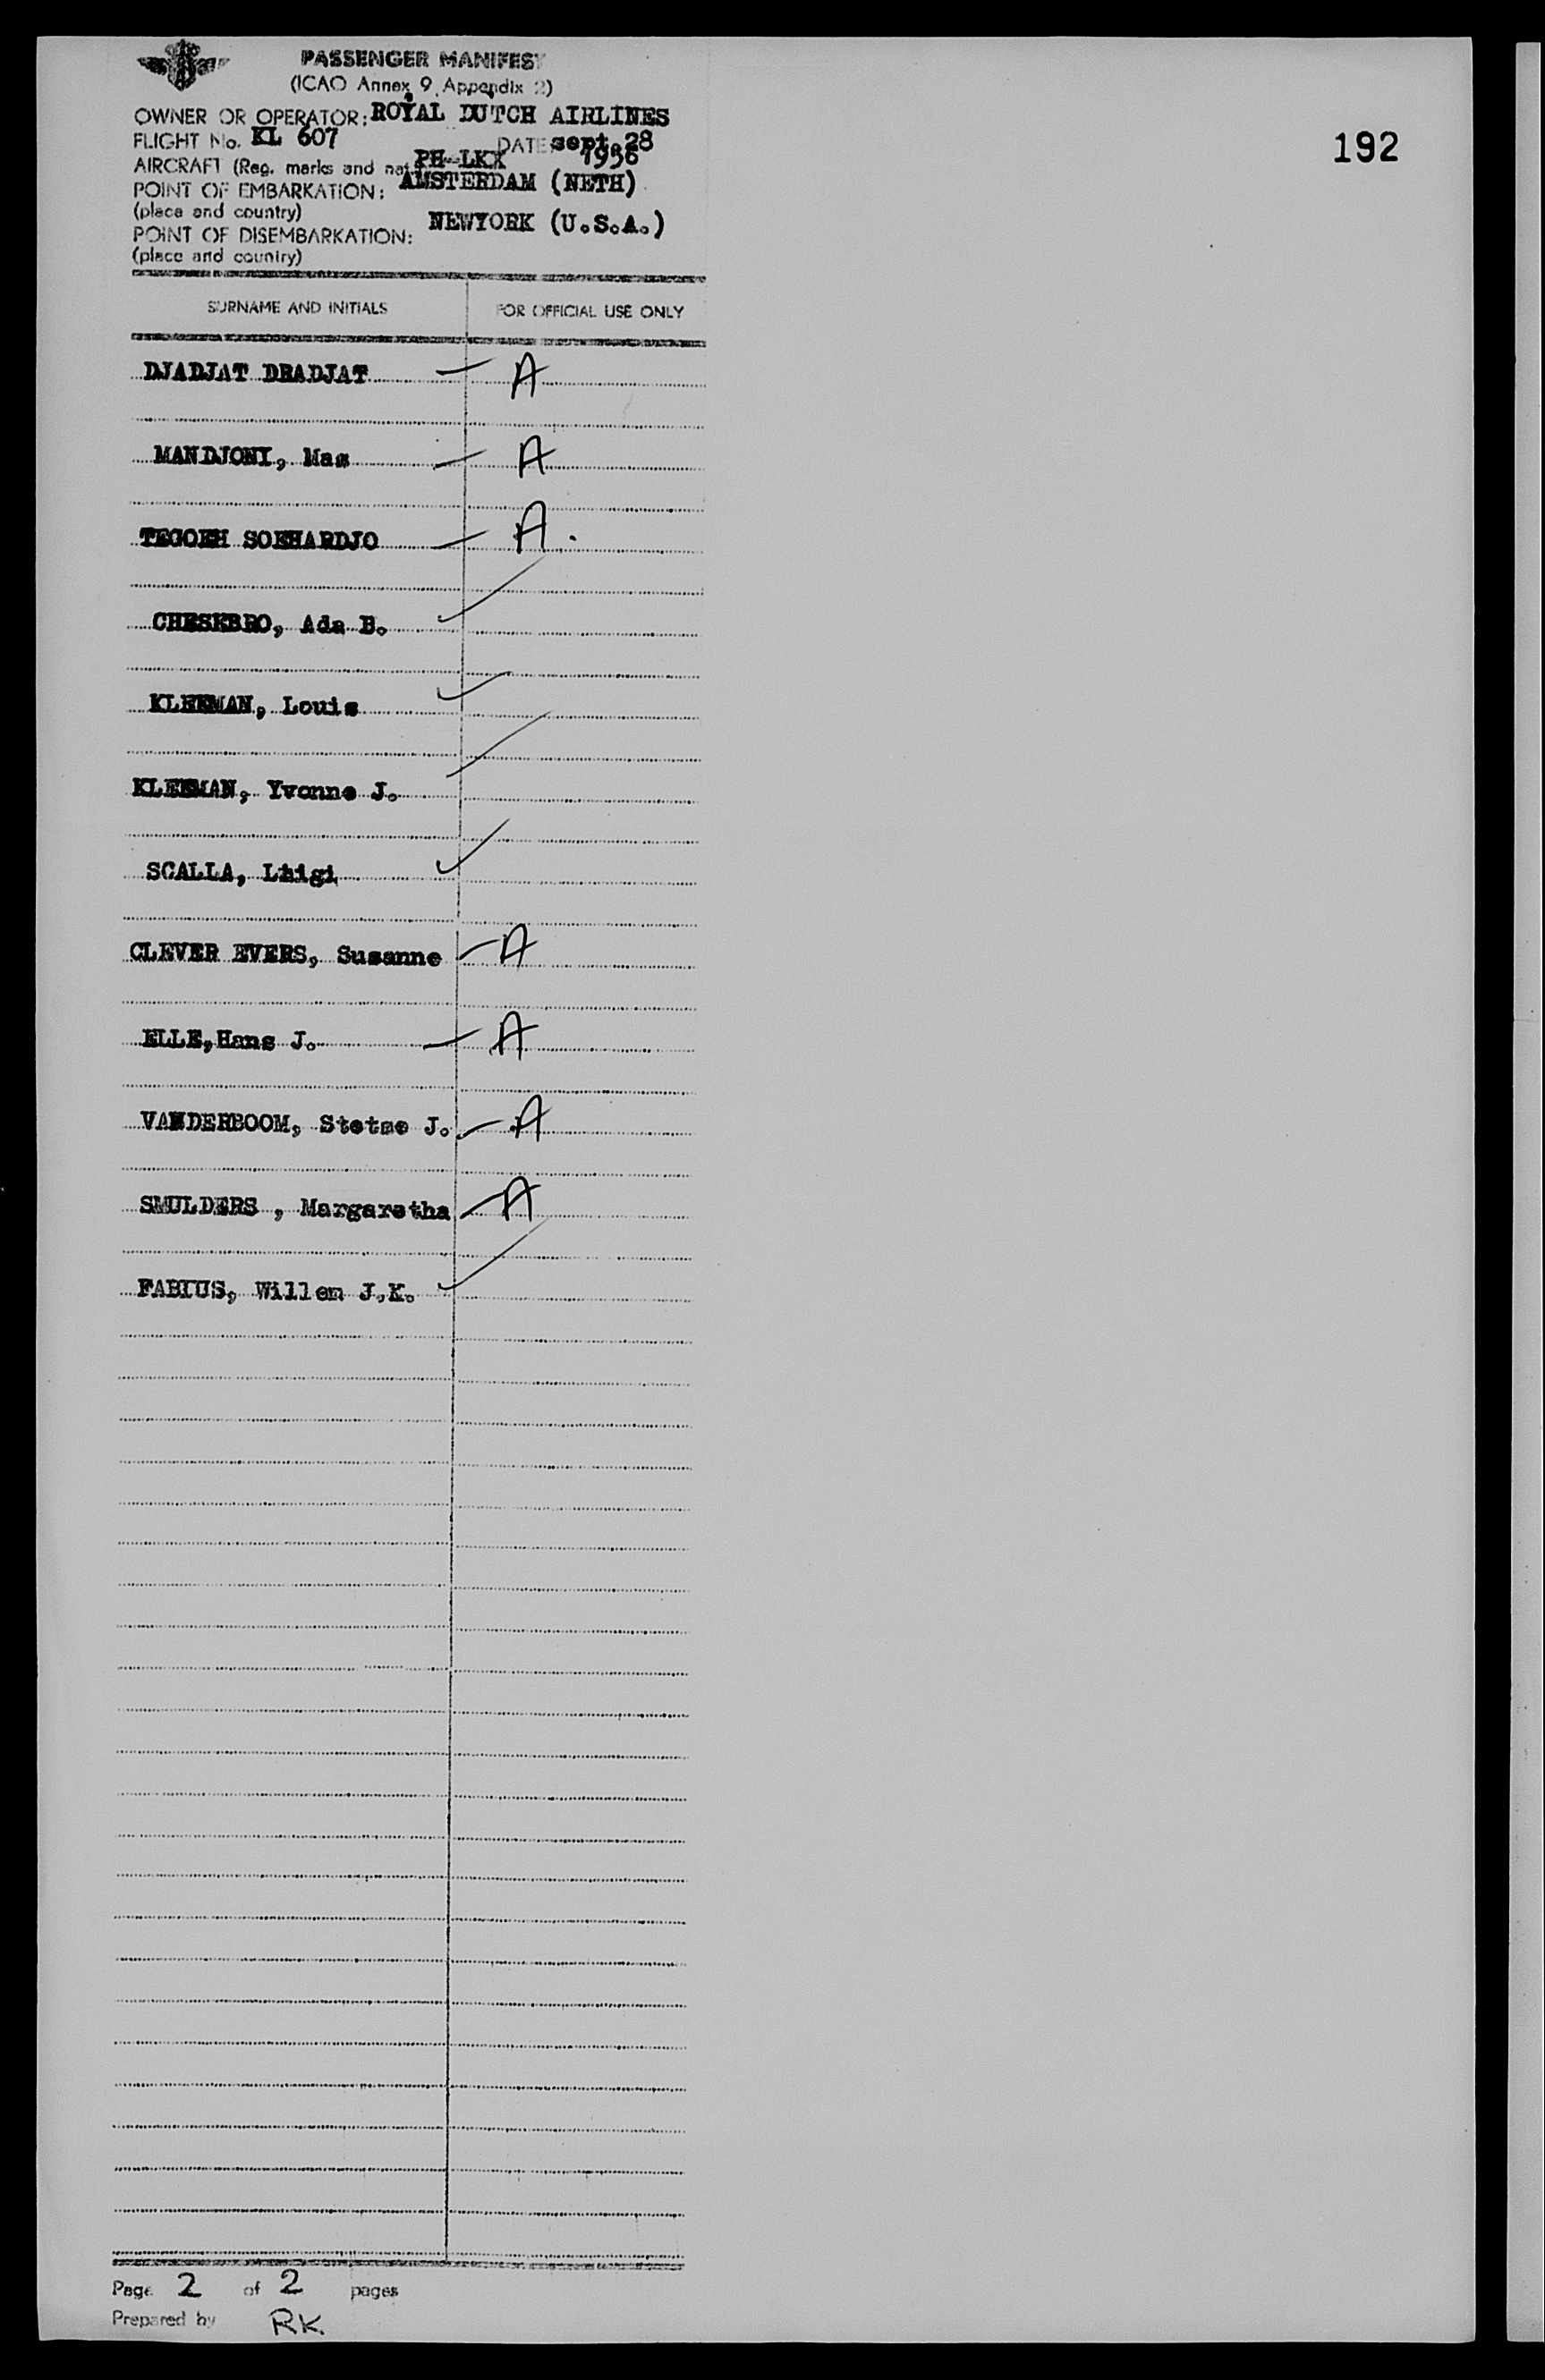 PASSENGER MANIFEST
(ICAO Annex 9, Appendix 2)
OWNER OR OPERATOR: ROYAL DUTCH AIRLINES
FLIGHT No. KL 607 DATE: sept. 28
AIRCRAFT (Reg. marks and nat PH-LKX 1956
POINT OF EMBARKATION: AMSTERDAM (NETH)
(place and country)
POINT OF DISEMBARKATION: NEWYORK (U.S.A.)
(place and country)
192
SURNAME AND INITIALS FOR OFFICIAL USE ONLY
DJADJAT DRADJAT — A
MANDJONI, Mas — A
TEGOEH SOEHARDJO — A.
CHESEBRO, Ada B. ✓
KLEEMAN, Louis ✓
KLEEMAN, Yvonne J.
SCALLA, Luigi ✓
CLEVER EVERS, Susanne — A
ELLE, Hans J. — A
VANDERBOOM, Stetse J. — A
SMULDERS , Margaretha — A
FABIUS, Willem J.K. ✓
Page 2 of 2 pages
Prepared by RK.